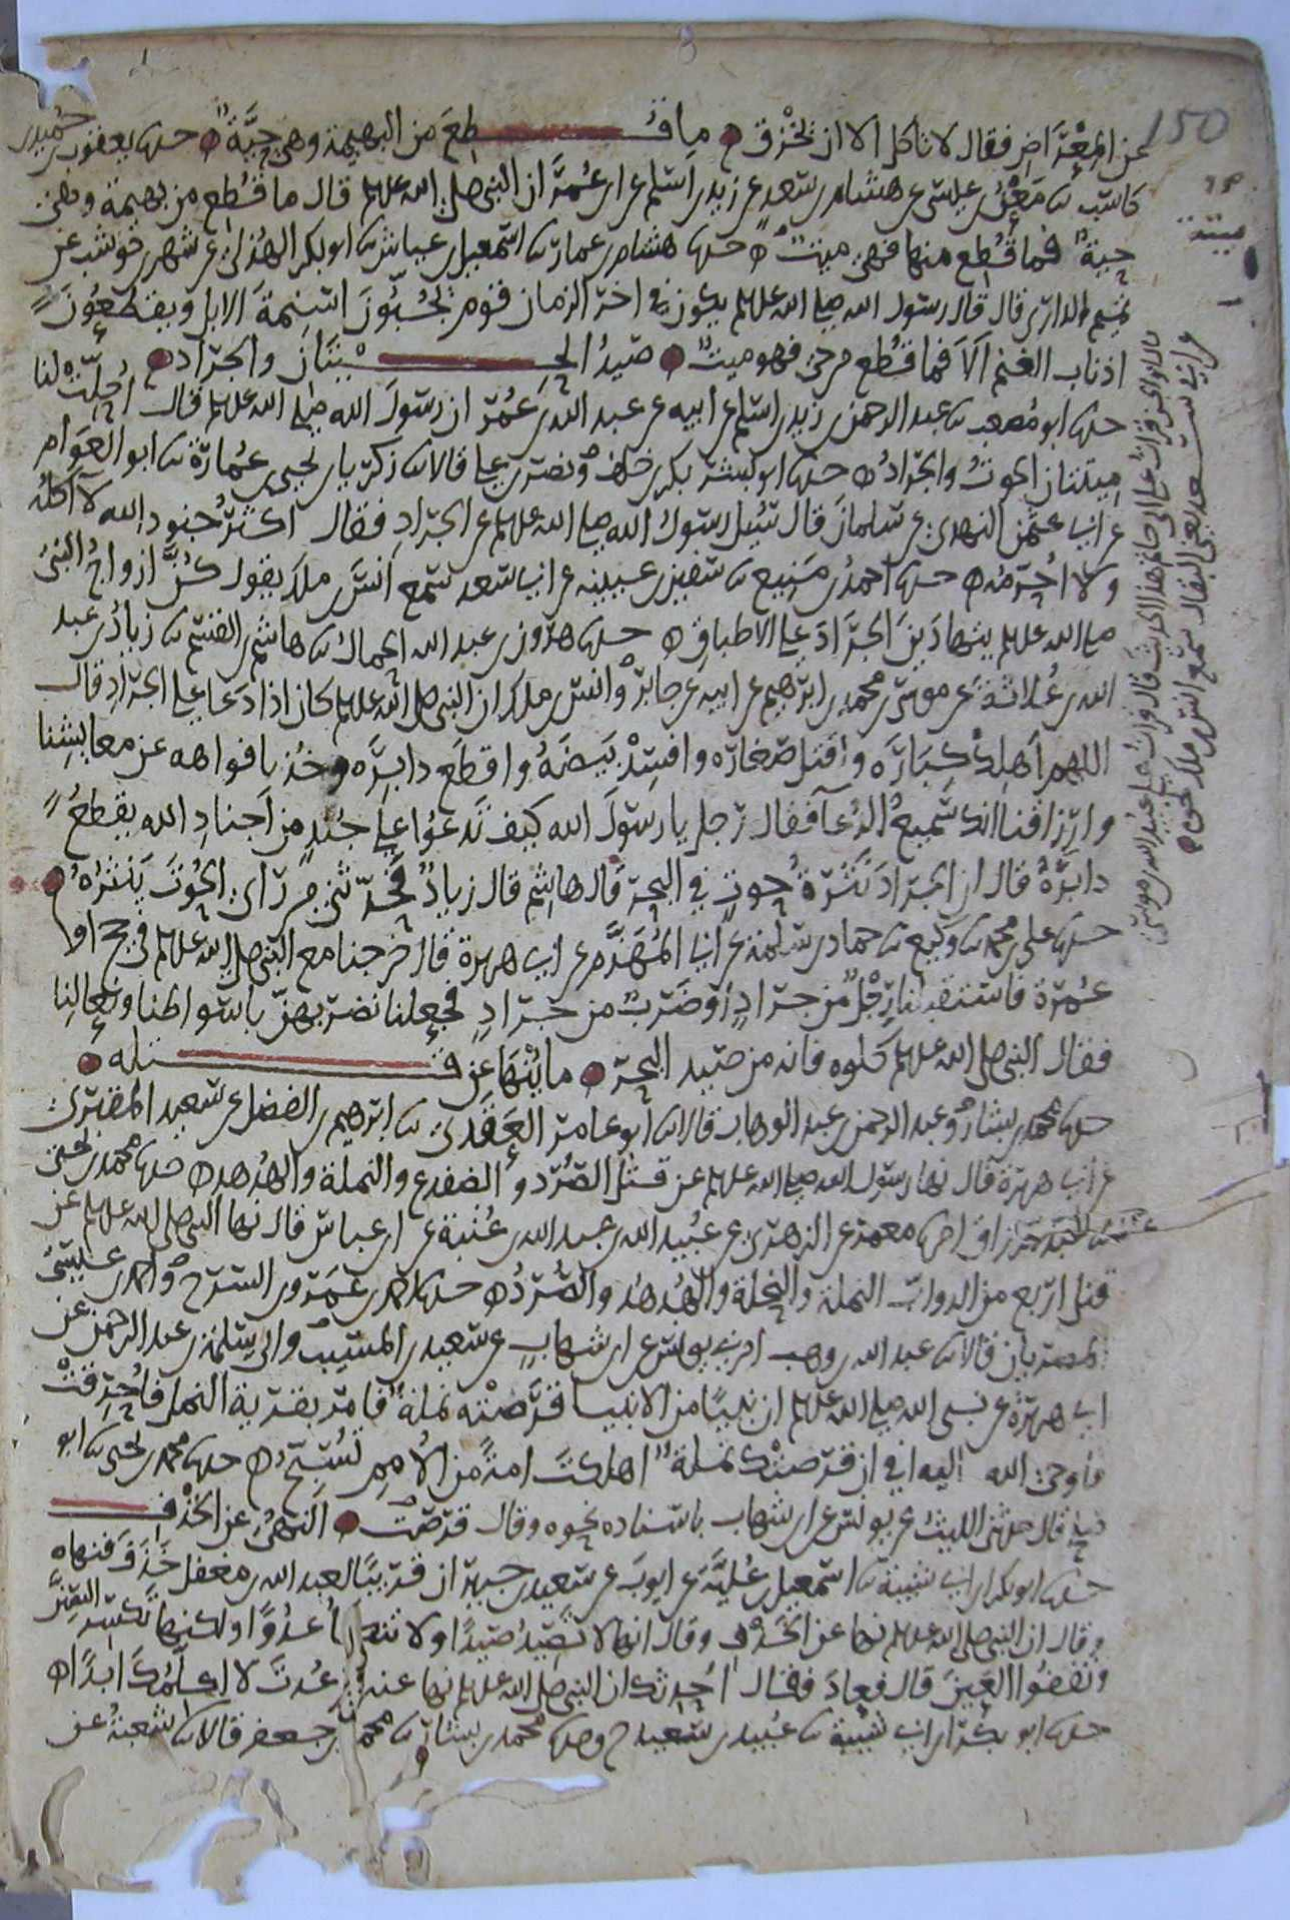 عن المعراض فقال لا تاكل الا ان تخزق ما قطع من البهيمة وهي حية حدثنا يعقوب بن حميد بن
كاسب ثنا معن بن عيسى عن هشام بن سعد عن زيد بن اسلم عن ابن عمر ان النبي صلى الله عليه وسلم قال ما قطع من بهيمة وهي
حية فما قطع منها فهي ميتة حدثنا هشام بن عمار ثنا اسمعيل بن عياش ثنا ابو بكر الهذلي عن شهر بن حوشب عن
تميم الداري قال قال رسول الله صلى الله عليه وسلم يكون في اخر الزمان قوم يجبون اسنمة الابل ويقطعون
اذناب الغنم الا فما قطع من حي فهو ميت صيد الحيتان والجراد
حدثنا ابو مصعب ثنا عبد الرحمن بن زيد بن اسلم عن ابيه عن عبد الله بن عمر ان رسول الله صلى الله عليه وسلم قال احلت لنا
ميتتان الحوت والجراد حدثنا ابو بشر بكر بن خلف ونصر بن علي قالا ثنا زكريا بن يحيى بن عمارة ثنا ابو العوام
عن ابي عثمن النهدي عن سلمان قال سئل رسول الله صلى الله عليه وسلم عن الجراد فقال اكثر جنود الله لا اكله
ولا احرمه حدثنا احمد بن منيع ثنا سفين بن عيينه عن ابي سعد سمع انس بن ملك يقول كن ازواج النبي
صلى الله عليه وسلم يتهادين الجراد على الاطباق حدثنا هرون بن عبد الله الحمال ثنا هاشم بن القسم ثنا زياد بن عبد
الله بن علاثة عن موسى بن محمد بن ابرهيم عن ابيه عن جابر وانس بن ملك ان النبي صلى الله عليه وسلم كان اذا دعا على الجراد قال
اللهم اهلك كباره واقتل صغاره وافسد بيضه واقطع دابره وخذ بافواهه عن معايشنا
وارزاقنا انك سميع الدعآ فقال رجل يا رسول الله كيف تدعوا على جند من اجناد الله بقطع
دابره قال ان الجراد نثرة حوت في البحر قال هاشم قال زياد فحدثني من راى الحوت ينثره
حدثنا علي بن محمد ثنا وكيع ثنا حماد بن سلمة عن ابي المهزم عن ابي هريرة قال خرجنا مع النبي صلى الله عليه وسلم في حج او
عمرة فاستقبلنا رجل من جراد او ضرب من جراد فجعلنا نضربهن باسواطنا ونعالنا
فقال النبي صلى الله عليه وسلم كلوه فانه من صيد البحر ما ينها عن قتله
حدثنا محمد بن بشار وعبد الرحمن بن عبد الوهاب قالا ثنا ابو عامر العقدي ثنا ابرهيم بن الفضل عن سعيد المقبري
عن ابي هريرة قال نها رسول الله صلى الله عليه وسلم عن قتل الصرد والضفدع والنملة والهدهد حدثنا محمد بن يحيى
ثنا عبد الرزاق انا معمر عن الزهري عن عبيد الله بن عبد الله بن عتبة عن ابن عباس قال نها النبي صلى الله عليه وسلم عن
قتل اربع من الدواب النملة والنحلة والهدهد والصرد حدثنا احمد بن عمرو بن السرح واحمد بن عيسى
المصريان قالا ثنا عبد الله بن وهب اخبرني يونس عن ابن شهاب عن سعيد بن المسيب وابي سلمة بن عبد الرحمن عن
ابي هريرة عن نبي الله صلى الله عليه وسلم ان نبيا من الانبيا قرصته نملة فامر بقرية النمل فاحرقت
فاوحى الله اليه افي ان قرصتك نملة اهلكت امة من الامم تسبح حدثنا محمد بن يحيى ثنا ابو
صالح قال حدثني الليث عن يونس عن ابن شهاب باسناده نحوه وقال قرصت النهي عن الخذف
حدثنا ابو بكر بن ابي شيبة ثنا اسمعيل بن علية عن ايوب عن سعيد بن جبير ان قريبا لعبد الله بن مغفل خذف فنهاه
وقال ان النبي صلى الله عليه وسلم نها عن الخذف وقال انها لا تصيد صيدا ولا تنكا عدوا ولكنها تكسر السن
وتفقوا العين قال فعاد فقال احدثك ان النبي صلى الله عليه وسلم نها عنه ثم عدت لا اكلمك ابدا
حدثنا ابو بكر بن ابي شيبة ثنا عبيد بن سعيد ح وحدثنا محمد بن بشار ثنا محمد بن جعفر قالا ثنا شعبة عن
150
ميتة